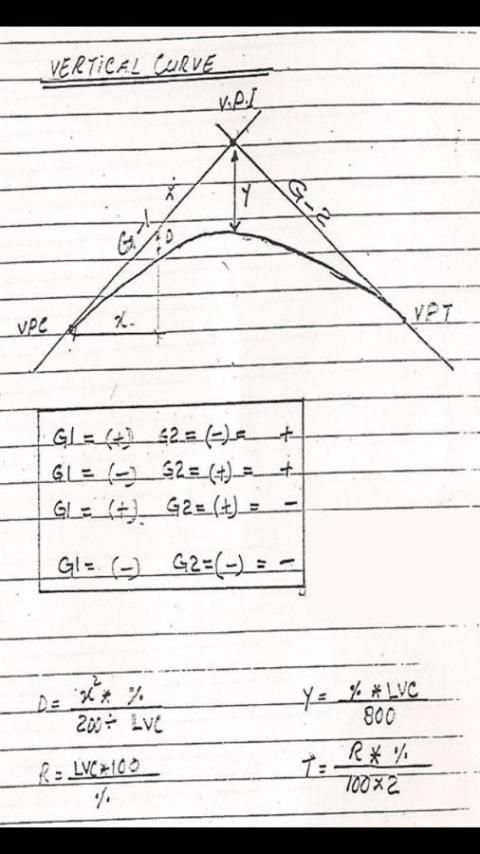 VERTICAL CURVE
V.P.I
x
G-1
Y
G-2
D
VPC
x
VPT
G1 = (+) G2 = (-) = +
G1 = (-) G2 = (+) = +
G1 = (+) G2 = (+) = -
G1 = (-) G2 = (-) = -
D = x² * % / 200 ÷ LVC
Y = % * LVC / 800
R = LVC * 100 / %
T = R * % / 100 x 2